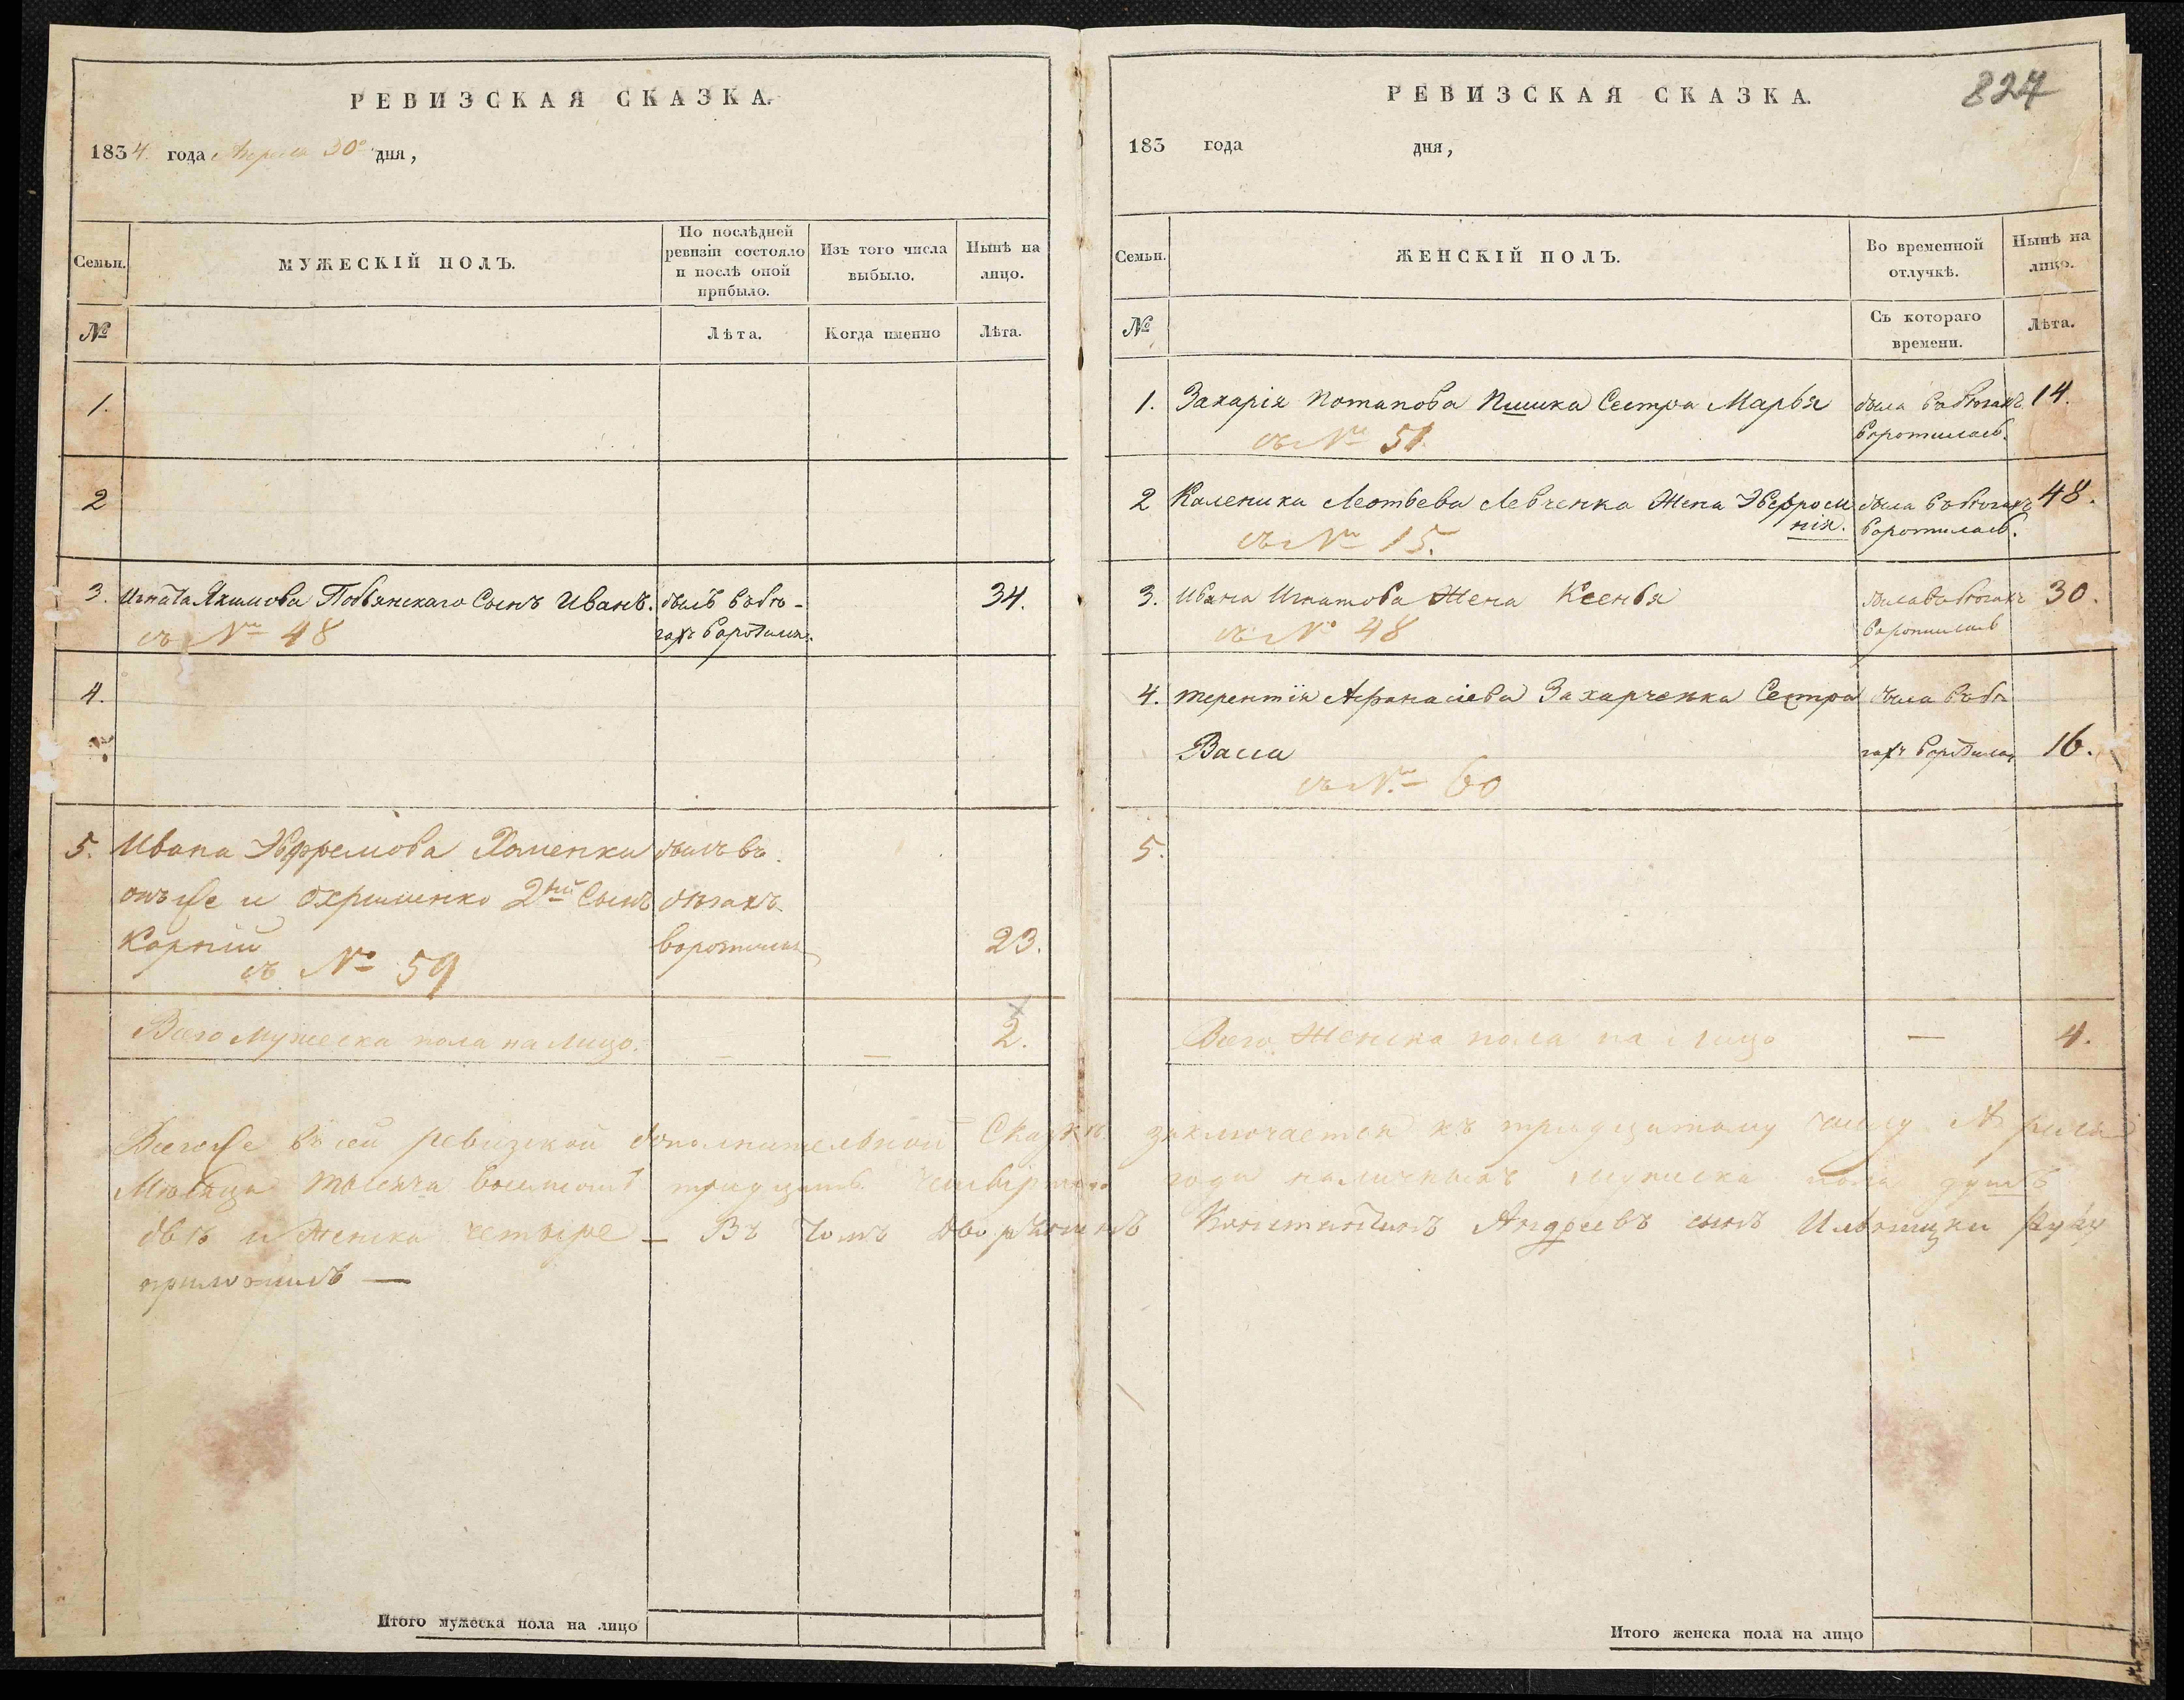 РЕВИЗСКАЯ СКАЗКА.
1834. года Апреля 30° дня,
Семьи.
МУЖЕСКІЙ ПОЛЪ.
По послѣдней
ревизіи состояло
и послѣ оной
прибыло.
Изъ того числа
выбыло.
Нынѣ на
лицо.
№
Лѣта.
Когда именно
Лѣта.
1.
2
3. Игната Якимова Сынъ Иванъ. былъ въ бѣ-
гахъ 34.
съ № 48
4.
5. Ивана Эвфремова Хоменки былъ въ
онъ же и 2й Сынъ бѣгахъ
Корній воротился 23.
съ № 59
Всего Мужеска пола на лицо. — — 2.
РЕВИЗСКАЯ СКАЗКА.
827
183 года дня,
Семьи.
ЖЕНСКІЙ ПОЛЪ.
Во временной
отлучкѣ.
Нынѣ на
лицо.
№
Съ котораго
времени.
Лѣта.
1. Захарія Потапова Сестра Марья была въ бѣгахъ 14.
воротилась.
съ № 51.
2 Каленика Леотьева Левченка Жена Эвфроси была въ бѣгахъ 48.
нія. воротилась.
съ № 15.
3. Ивана Игнатова Жена Ксенья была въ бѣгахъ 30.
воротилась
съ № 48
4. терентія Афанасіева Захарченка Сестра была въ бѣ
Васса гахъ 16.
съ № 60
5.
Всего Женска пола на лицо — 4.
Всего же въ сей ревизской дополнительной Сказкѣ заключается къ тридцатому числу Апреля
Мѣсяца тысяча восемсотъ тридцать четвертого года наличныхъ мужеска пола душъ
двѣ и Женска четыре — Въ томъ дворянинъ Константинъ Андреевъ сынъ руку
приложилъ —
Итого мужеска пола на лицо
Итого женска пола на лицо